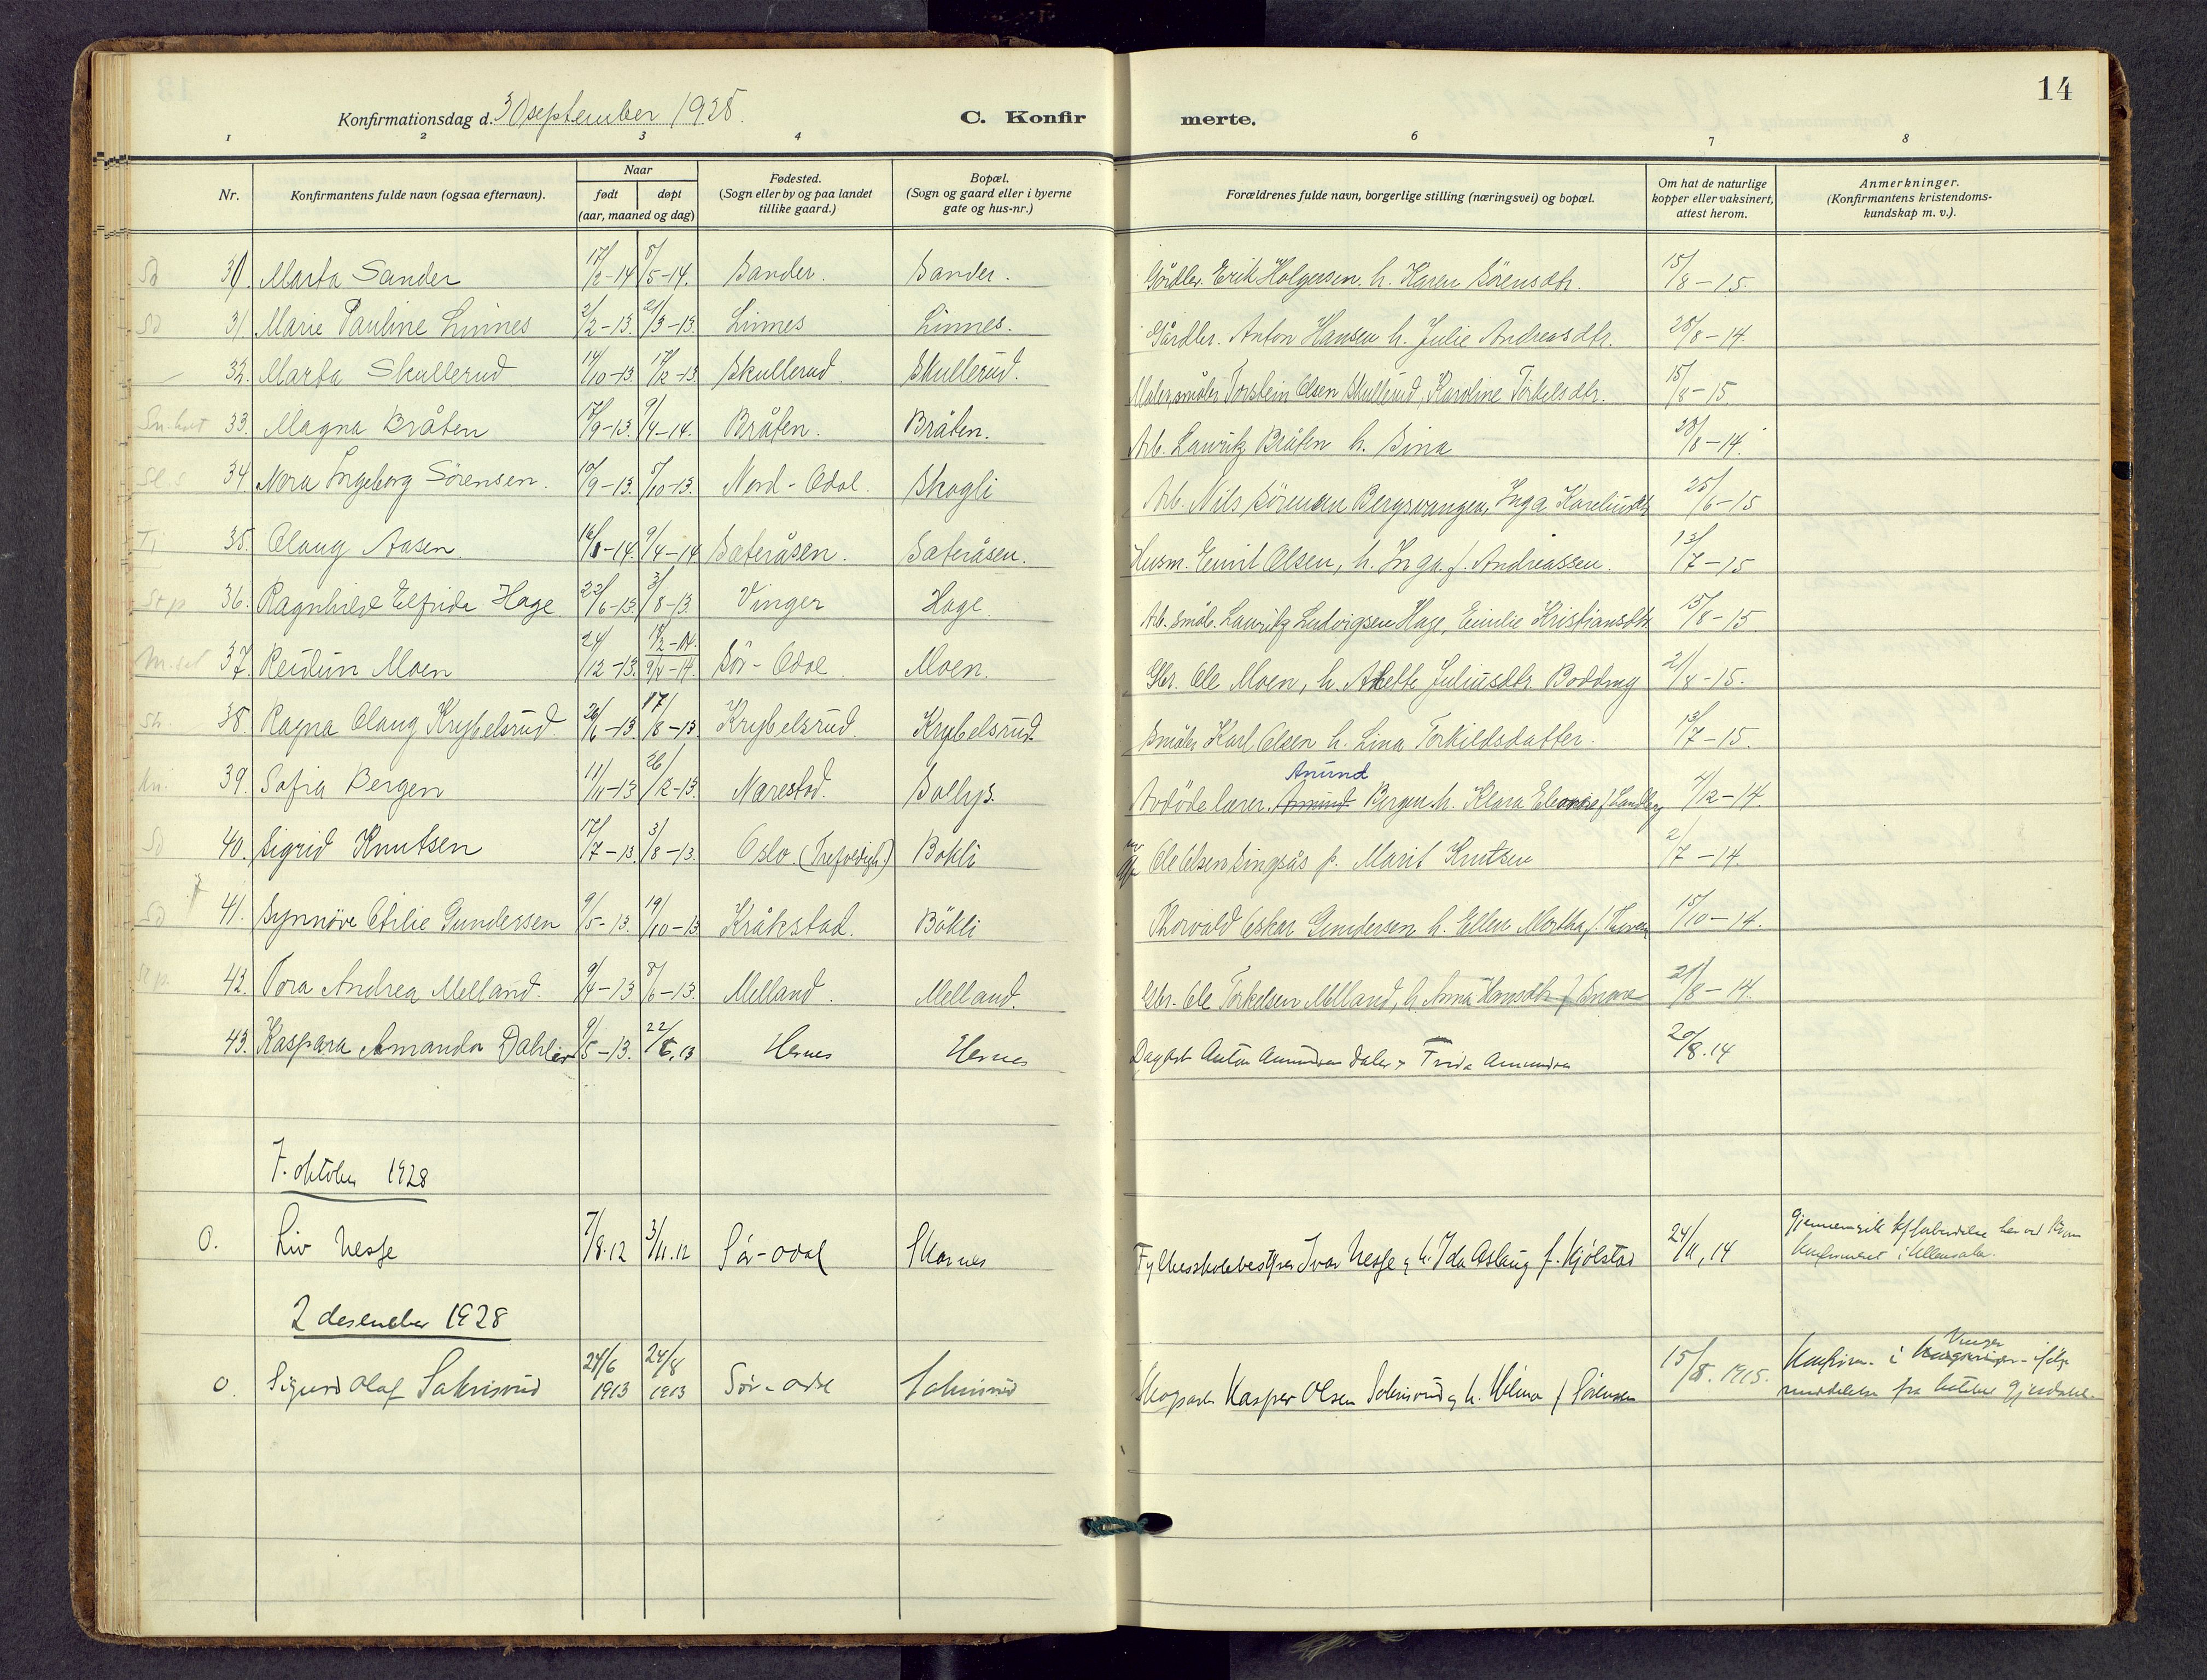 14
Konfirmationsdag d. 30 september 1928.
C. Konfirmerte.
1 2 3 4 6 7 8
Nr. Konfirmantens fulde navn (ogsaa efternavn). Naar født døpt (aar, maaned og dag) Fødested. (Sogn eller by og paa landet tillike gaard.) Bopæl. (Sogn og gaard eller i byerne gate og hus-nr.) Forældrenes fulde navn, borgerlige stilling (næringsvei) og bopæl. Om hat de naturlige kopper eller vaksinert, attest herom. Anmerkninger. (Konfirmantens kristendomskundskap m. v.).
30. Marta Sander 17/2-14 5-14. Sander. Sander. Gårdbr. Erik Holgersen. h. Karen Sörensdtr. 15/8-15.
31. Marie Pauline Linnes 2/2-13. 2/3-13. Linnes Linnes. Gårdbr. Anton Hansen h. Julie Andreasdtr. 28/8-14.
32. Marta Skullerud 14/10-13. 17/12-13 Skullerud. Skullerud. Maler, småbr. Torstein Olsen Skullerud, Karoline Torkelsdtr. 15/8-15.
33. Magna Bråten 17/9-13. 9/4-14. Bråten. Bråten. Arb. Lauritz Bråten h. Sina 28/8-14.
34. Nora Ingeborg Sörensen. 10/9-13. 5/10-13. Nord-Odal. Skogli Arb. Nils Sörensen Bergsvangen, Inga 25/6-15
35. Olaug Aasen 16/1-14. 9/4-14 Sæteråsen. Sæteråsen. Husm. Emil Olsen, h. Inga f. Andreassen. 13/7-15
36. Ragnhild Elfrida Hage 22/6-13. 3/8-13. Vinger Hage. Arb. småb. Lauritz Ludvigsen Hage, Emilie Kristiansdtr 15/8-15.
37. Reidun Moen 24/12-13. 9/4-14 Sör-Odal. Moen. Gbr. Ole Moen, h. Juliusdtr. Bodding 2/8-15.
38. Ragna Olaug Krybelsrud 26/6-13 17/8-13 Krybelsrud. Krybelsrud. Småbr. Karl Olsen h. Lina Torkildsdatter. 13/7-15.
Anund
39. Sofia Bergen 11/11-13 26/12-13. Narestad. Solhys. Avdöde lærer Amund Bergen h. Klara Eleonore f. Landberg 4/12-14.
40. Sigrid Knutsen 17/7-13. 3/8-13. Oslo. (Trefoldigh.) Bökli Ole Olsen Singsås p. Marit Knutsen 2/7-14.
41. Synnöve Otilie Gundersen 9/5-13. 19/10-13 Kråkstad. Bökli Thorvald Oskar Gundersen h. Ellen Martha f. 15/10-14.
42. Tora Andrea Melland. 9/4-13 8/6-13. Melland. Melland. Gbr. Ole Torkelsen Melland, h. Anna Hansdtr f. 21/8-14.
43. Kaspara Amanda Dahler 9/5-13. 22/6, 13 Hernes Hernes Dagarb Anton Amundsen Daler 20/8.14
7. oktober 1928
0. Liv Nesse 7/8.12 3/11.12 Sör-odal Skarnes Fylkesskolebestyrer Ivar Nesse & h. Ida Aslaug f. Kjölstad 24/11, 14
2 desember 1928
0. Sigurd Olaf Sakrisrud 24/6 1913 24/8 1913 Sör-odal Sakrisrud Kasper Olsen Sakrisrud & h. Hilma f Sörensen 15/8. 1915. Konfirm. i Vinger